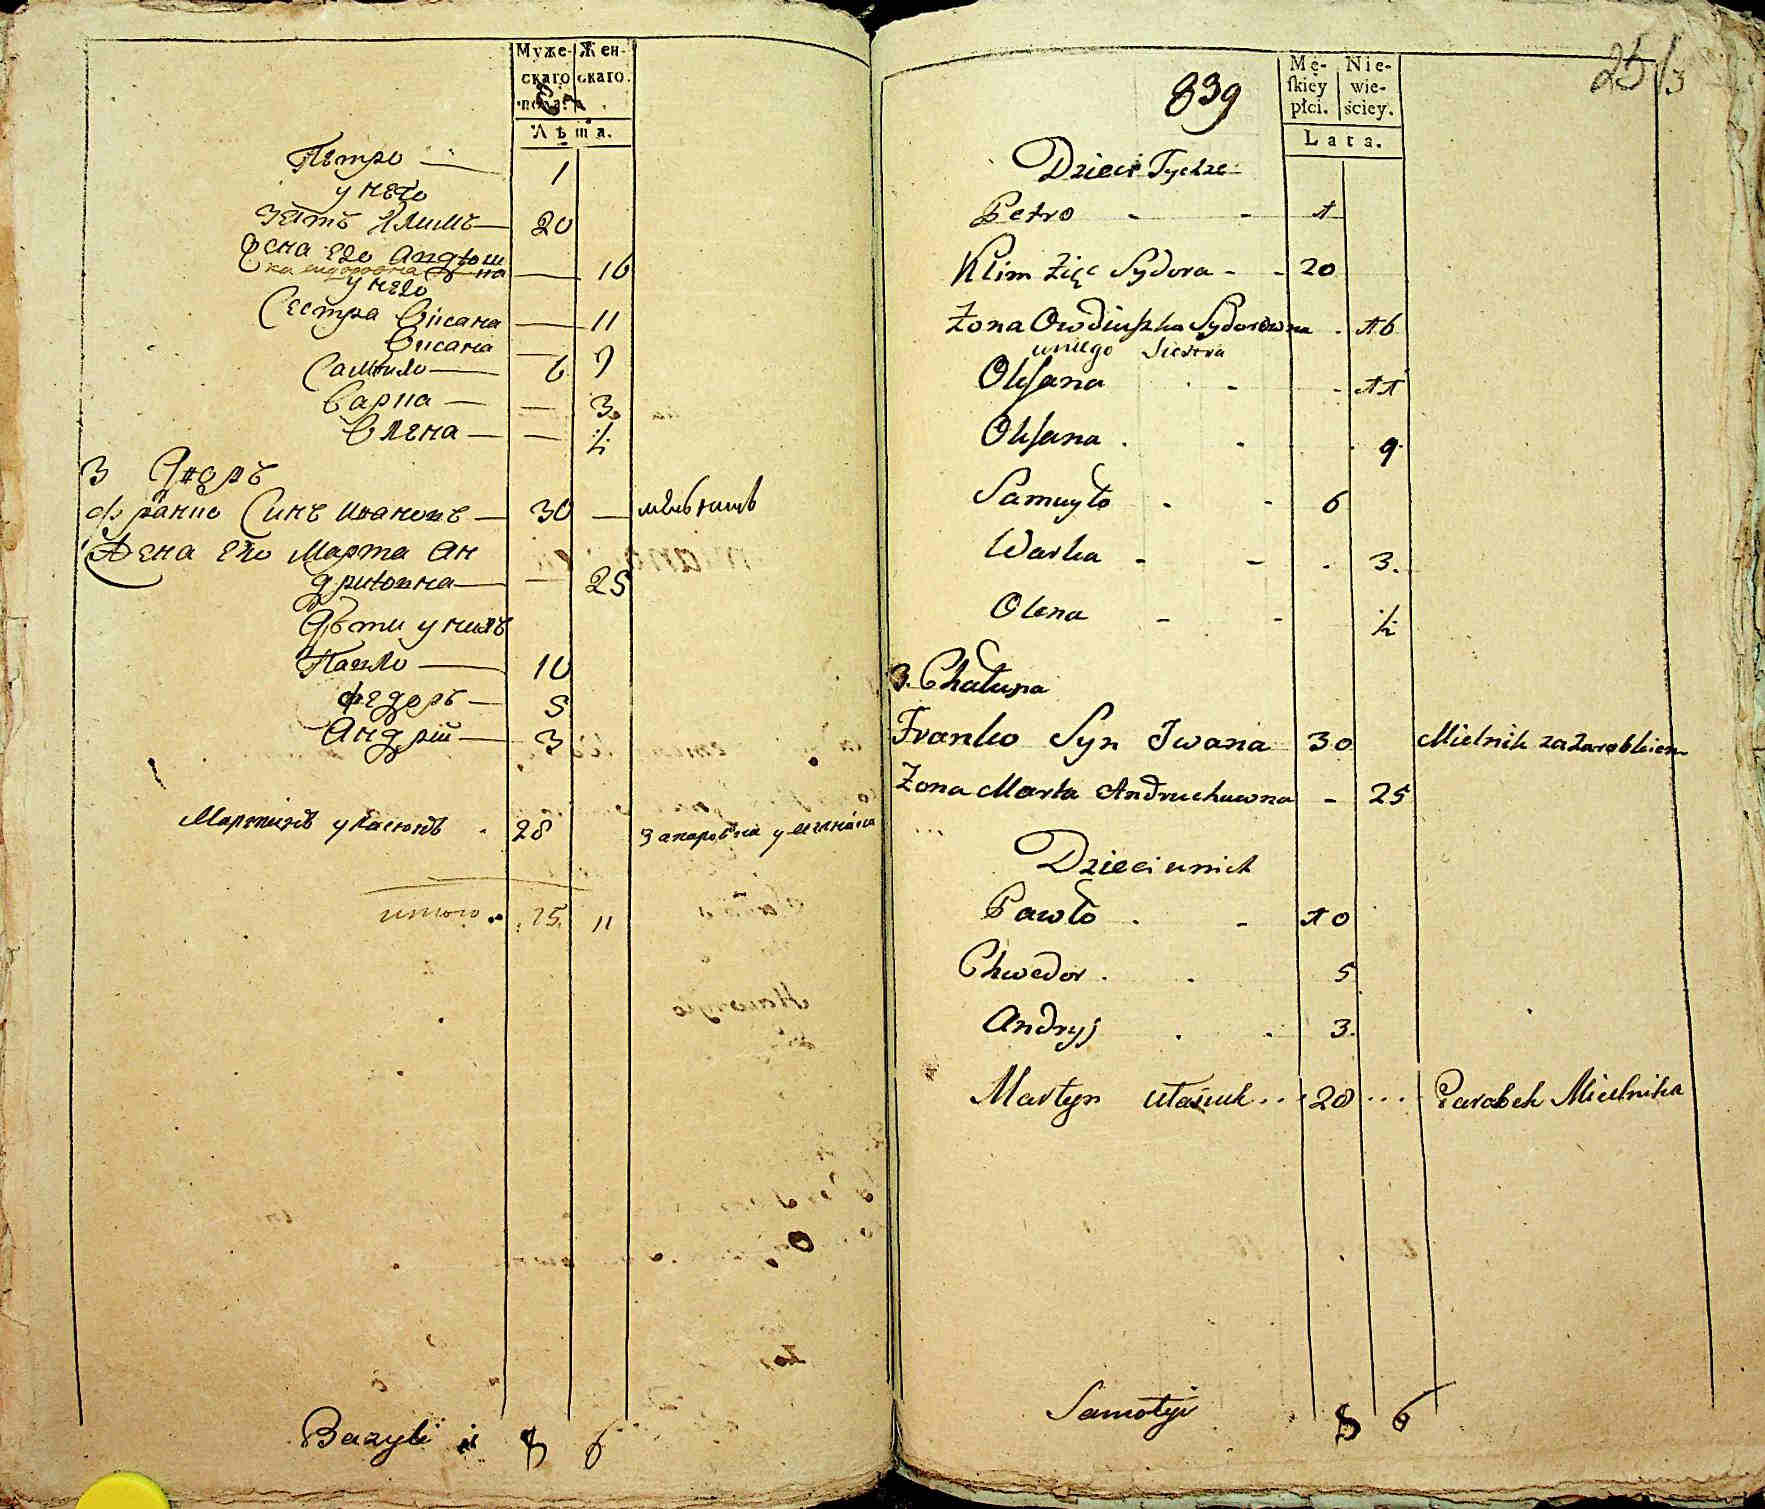 Муже- Жен-
скаго скаго.
пола.
Лѣта.
Петро — 1
у него
зять Климъ — 20
Жена его Андѣош
ка на — 16
у него
Сестра Оксана — 11
Оксана — 9
Самойло — 6
Варка — 3
Олена — ½
3 Дворъ
франко Синъ Ивановъ — 30 — мельникъ
Жена его Марта Ан
друховна — 25
Дѣти у нихъ
Павло — 10
Федоръ — 5
Андрій — 3
Мартинъ уласюкъ 28
итого 25 11
Bazyli i 8 6
839
25/3
Mę- Nie-
skiey wie-
płci. ściey.
Lata.
Dzieci Tychże
Petro - - 1
Klim Zięć Sydora - - 20
Żona Owdiuszka Sydorowna . 16
uniego Siestra
Oksana - - 11
Oksana . - . 9
Samuyło - - 6
Warka - - . 3.
Olena - - ½
3. Chałupa
Franko Syn Iwana 30 Mielnik za Zarobkiem
Żona Marta Andruchuwna - 25
Dzieci unich
Pawło . - 10
Chwedor . . 5
Andryj . . 3.
Martyn Ułasiuk ... 28 ... Parobek Mielnika
Samotyi 8 6